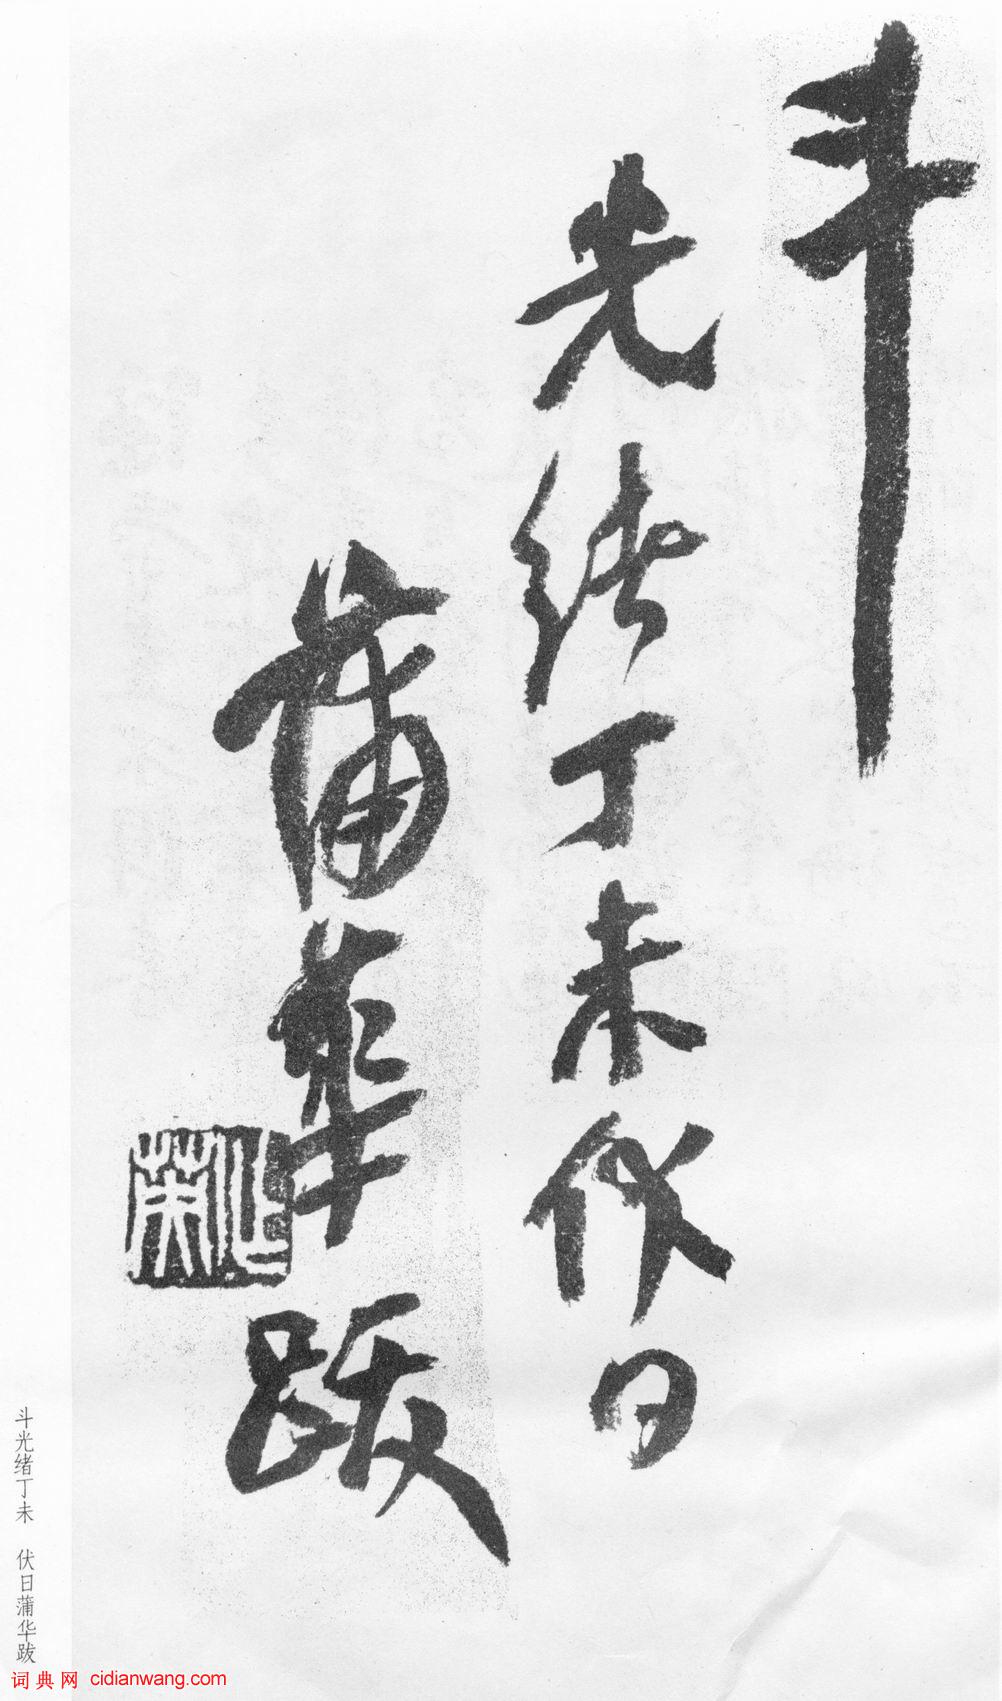 斗
光緒丁未伏日
蒲華跋
作英
斗光绪丁未 伏日蒲华跋
词典网 cidianwang.com